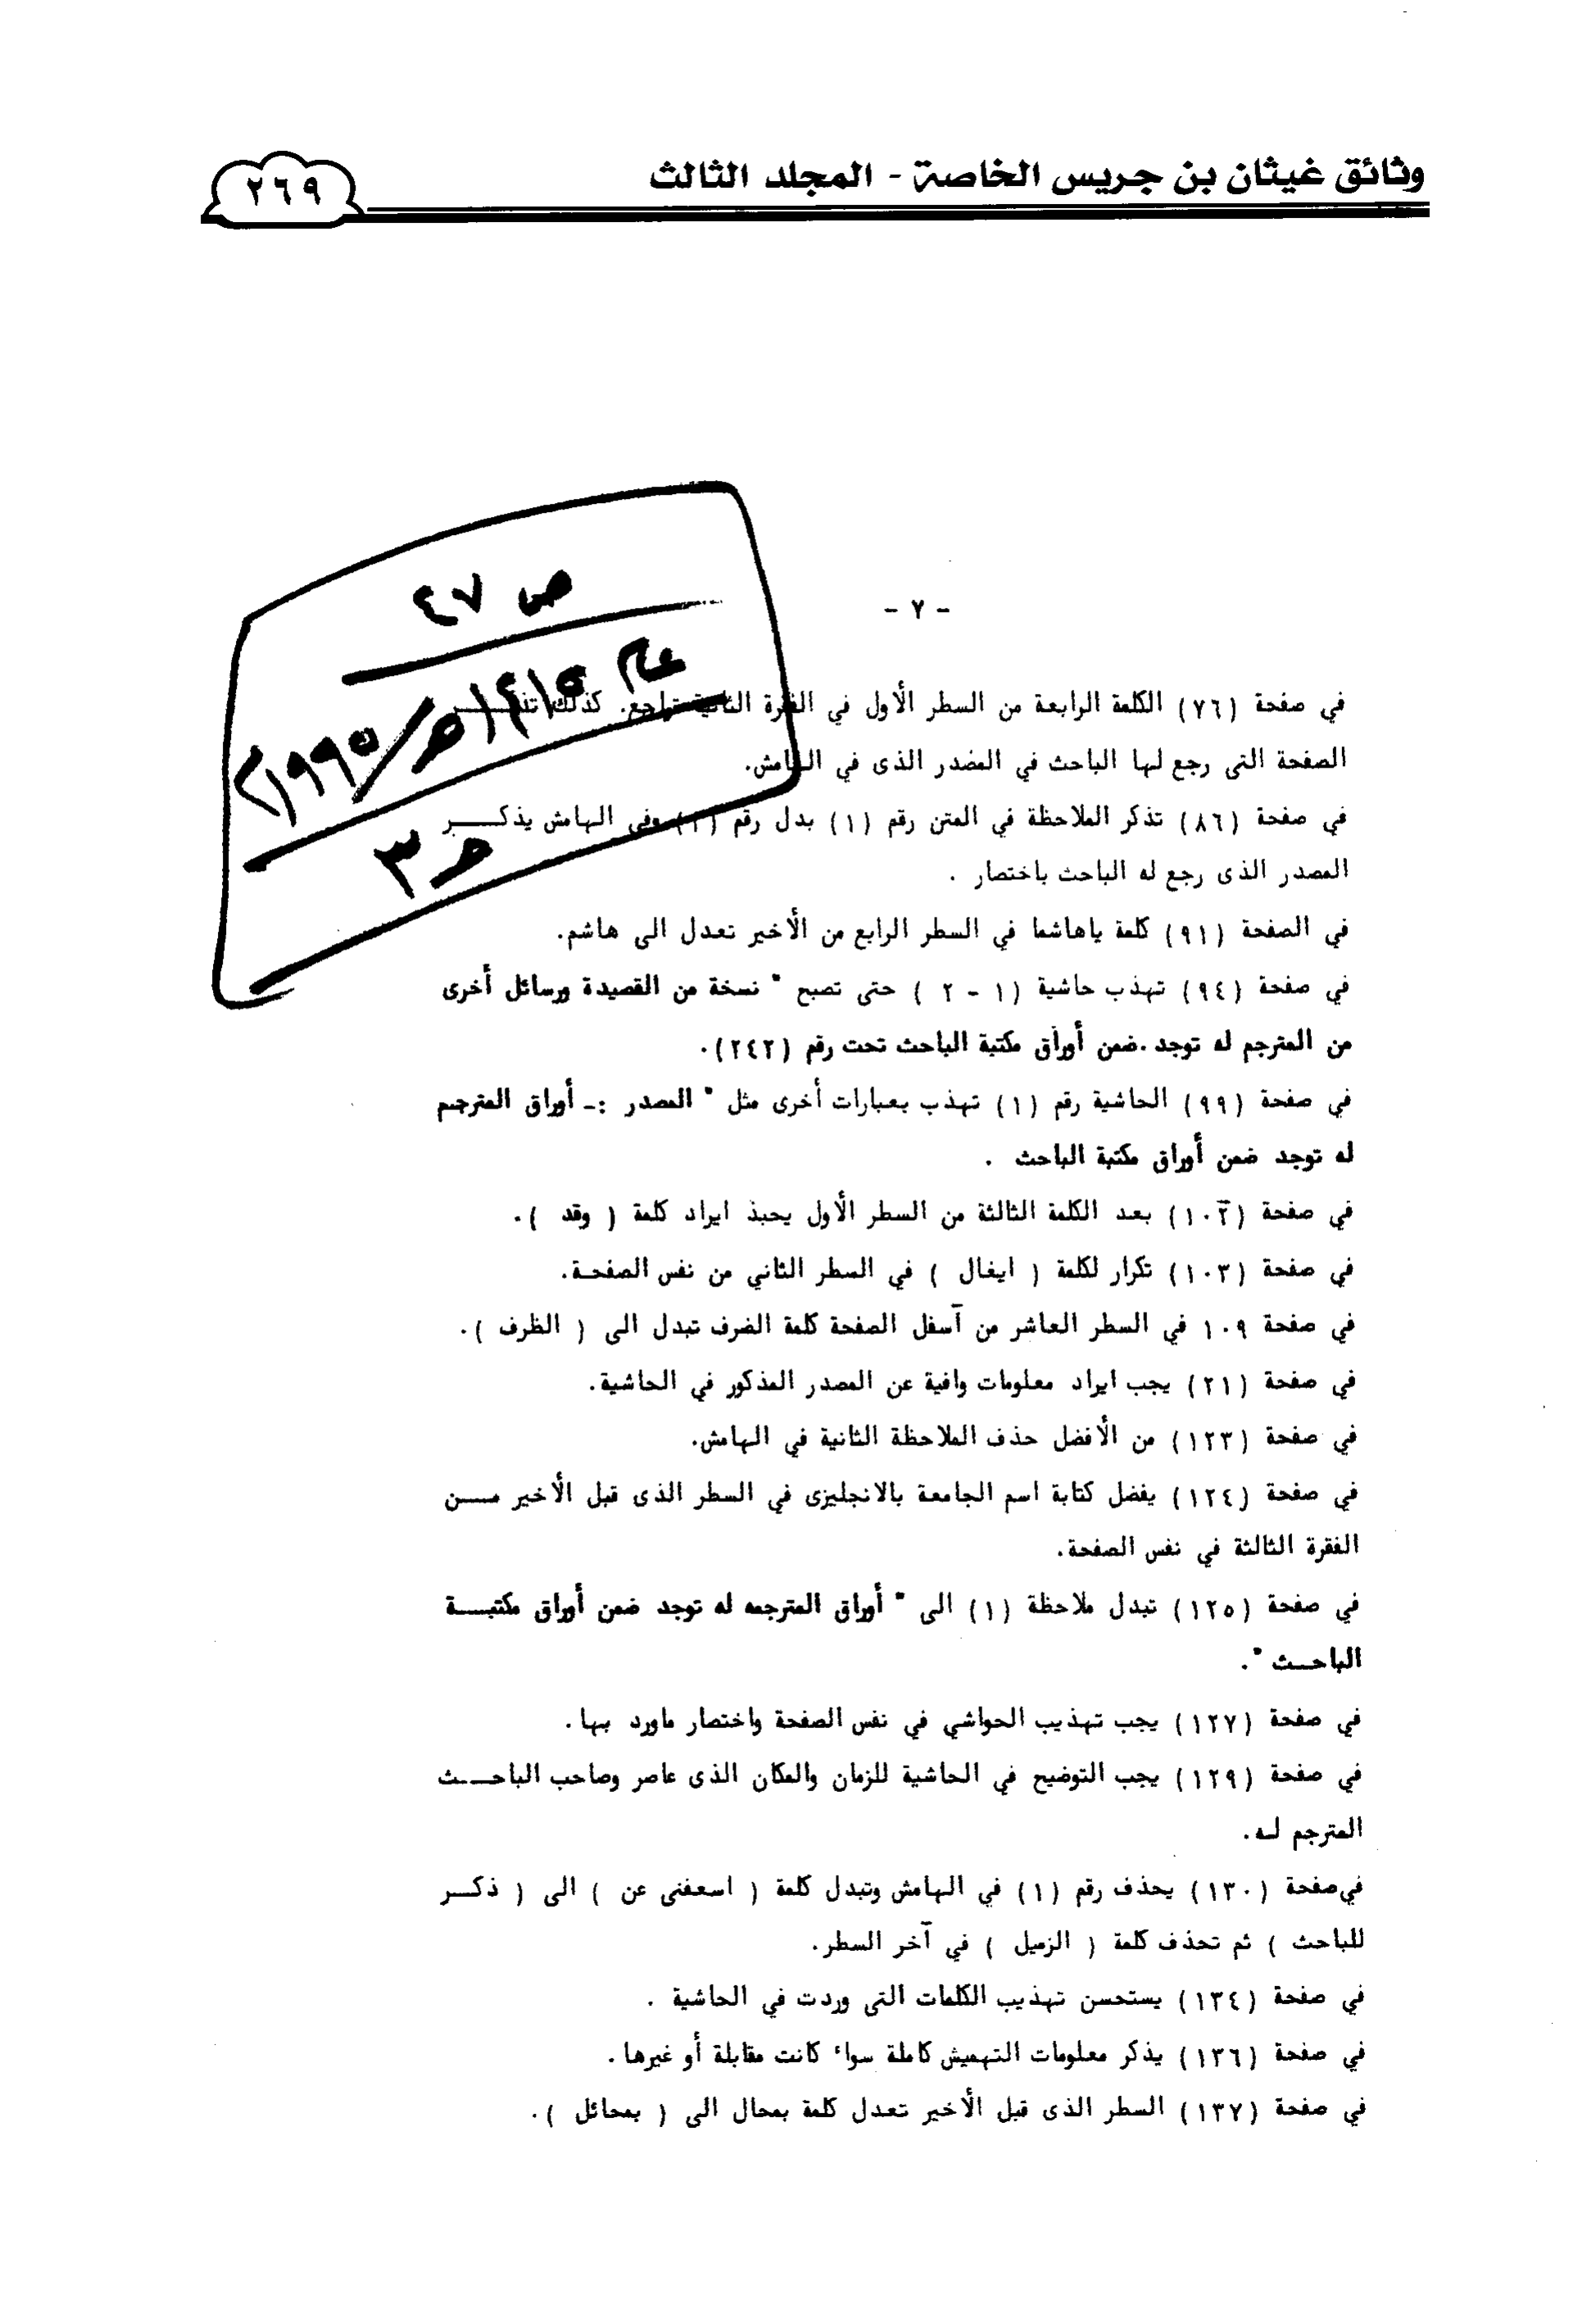 وثائق غيثان بن جريس الخاصة - المجلد الثالث
٢٦٩
ص ٤٧
عام ١٤١٥هـ/١٩٩٥م
حـ ٣
- ٧ -
في صفحة (٧٦) الكلمة الرابعة من السطر الأول في الفقرة الثانية تراجع. كذلك
الصفحة التى رجع لها الباحث في المصدر الذى في الهامش.
في صفحة (٨٦) تذكر الملاحظة في المتن رقم (١) بدل رقم وفى الهامش يذكـــر
المصدر الذى رجع له الباحث باختصار .
في الصفحة (٩١) كلمة ياهاشما في السطر الرابع من الأخير تعدل الى هاشم.
في صفحة (٩٤) تهذب حاشية (١ - ٢ ) حتى تصبح " نسخة من القصيدة ورسائل أخرى
من المترجم له توجد .ضمن أوراق مكتبة الباحث تحت رقم (٢٤٢).
في صفحة (٩٩) الحاشية رقم (١) تهذب بعبارات أخرى مثل " المصدر :- أوراق المترجم
له توجد ضمن أوراق مكتبة الباحث .
في صفحة (١٠٢) بعد الكلمة الثالثة من السطر الأول يحبذ ايراد كلمة ( وقد ).
في صفحة (١٠٣) تكرار لكلمة ( ايغال ) في السطر الثاني من نفس الصفحـة.
في صفحة ١٠٩ في السطر العاشر من آسفل الصفحة كلمة الضرف تبدل الى ( الظرف ).
في صفحة (٢١) يجب ايراد معلومات وافية عن المصدر المذكور في الحاشية.
في صفحة (١٢٣) من الأفضل حذف الملاحظة الثانية في الهامش.
في صفحة (١٢٤) يفضل كتابة اسم الجامعة بالانجليزى في السطر الذى قبل الأخير مـــن
الفقرة الثالثة في نفس الصفحة.
في صفحة (١٢٥) تبدل ملاحظة (١) الى " أوراق المترجمه له توجد ضمن أوراق مكتبـــة
الباحـــث ".
في صفحة (١٢٧) يجب تهذيب الحواشي في نفس الصفحة واختصار ماورد بها.
في صفحة (١٢٩) يجب التوضيح في الحاشية للزمان والمكان الذى عاصر وصاحب الباحـــث
المترجم لـه.
في صفحة (١٣٠) يحذف رقم (١) في الهامش وتبدل كلمة ( اسعفنى عن ) الى ( ذكـــر
للباحث ) ثم تحذف كلمة ( الزميل ) في آخر السطر.
في صفحة (١٣٤) يستحسن تهذيب الكلمات التى وردت في الحاشية .
في صفحة (١٣٦) يذكر معلومات التهميش كاملة سواء كانت مقابلة أو غيرها.
في صفحة (١٣٧) السطر الذى قبل الأخير تعدل كلمة بمحال الى ( بمحائل ).